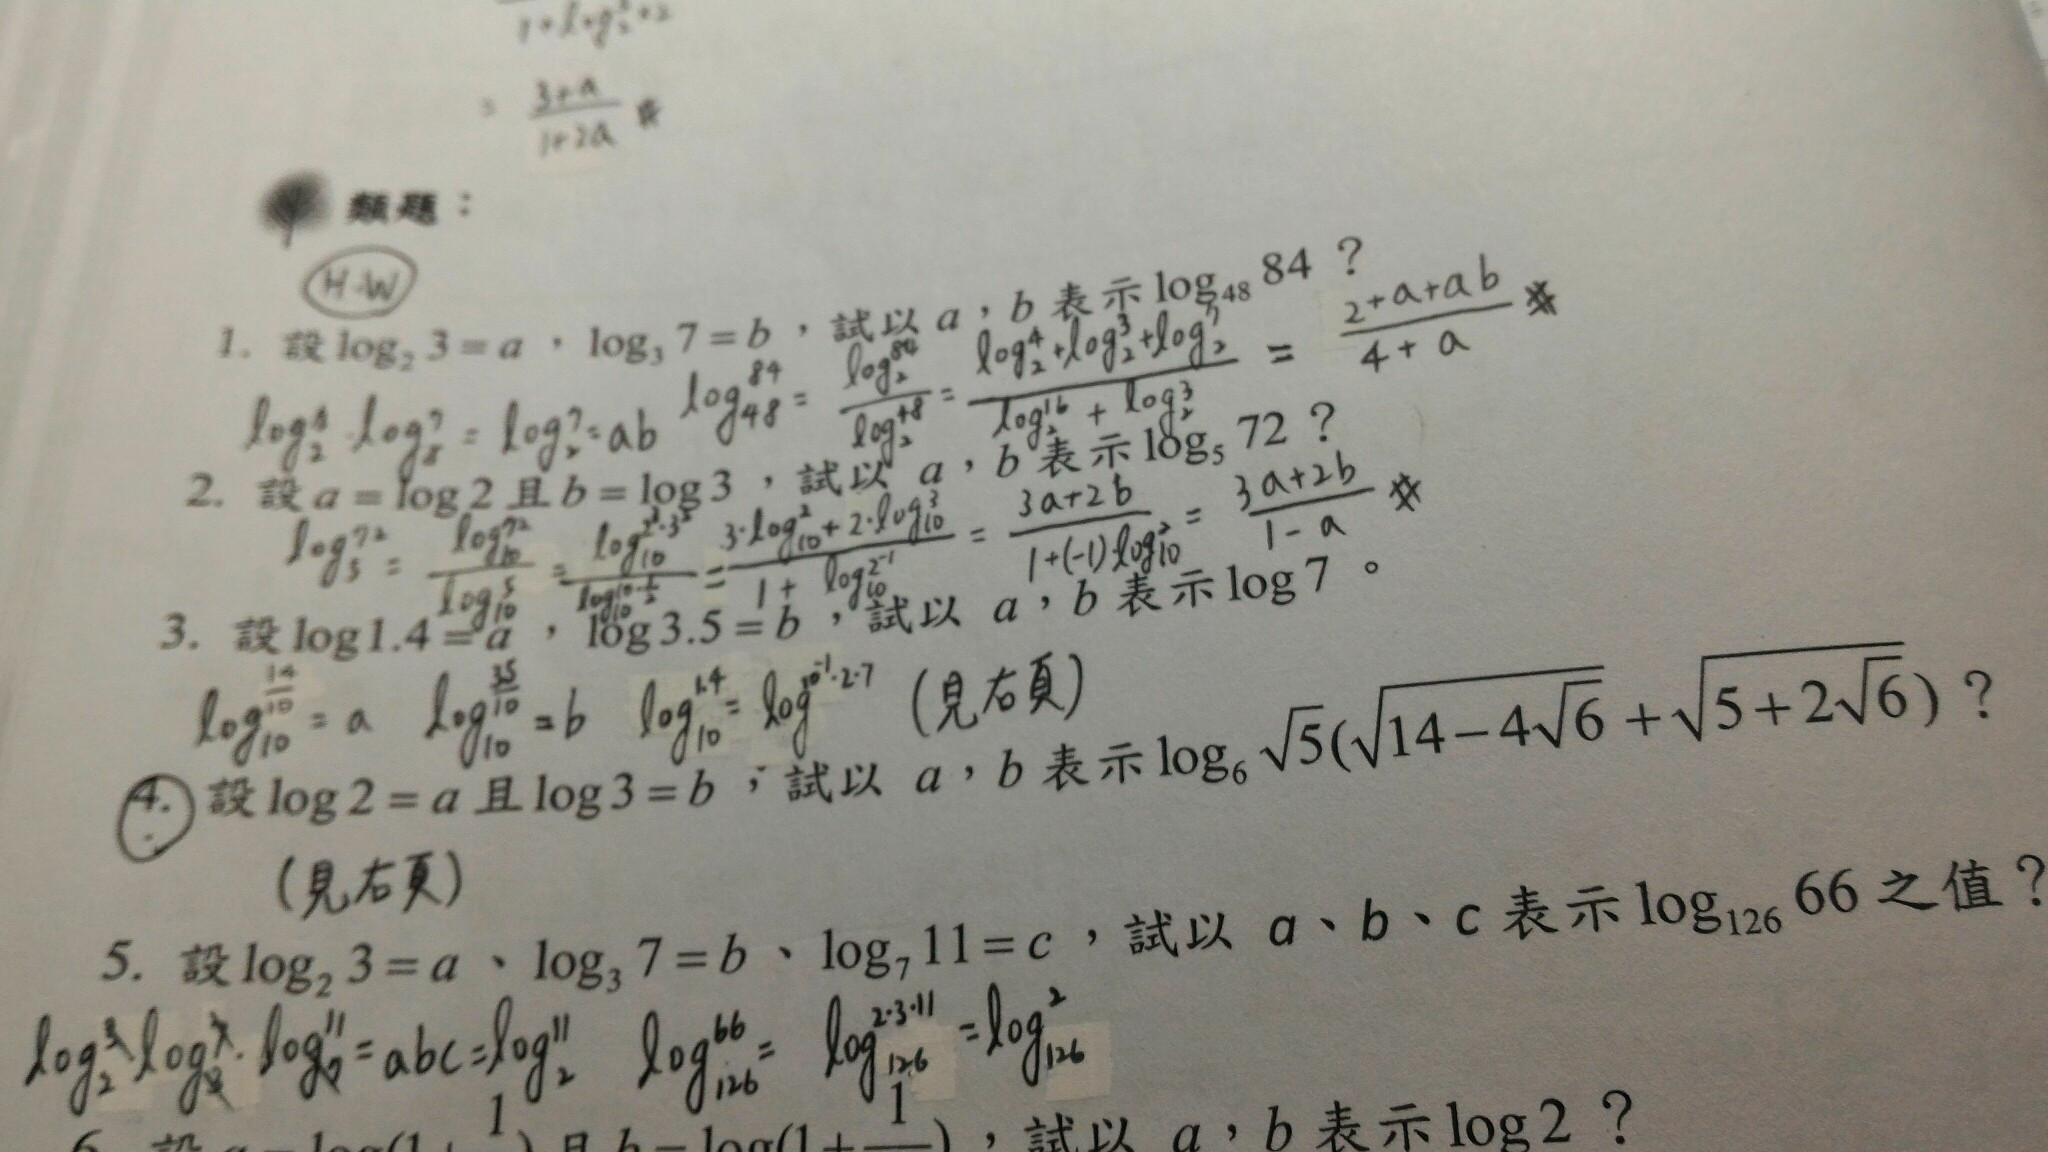 1+log₂³+2
= (3+a)/(1+2a) #
類題：
H.W
1. 設 log₂ 3 = a ， log₃ 7 = b ，試以 a，b 表示 log₄₈ 84？
log₂³·log₃⁷ = log₂⁷ = ab log₄₈⁸⁴ = log₂⁸⁴/log₂⁴⁸ = (log₂⁴+log₂³+log₂⁷)/(log₂¹⁶+log₂³) = (2+a+ab)/(4+a) #
2. 設 a = log 2 且 b = log 3 ，試以 a，b 表示 log₅ 72？
log₅⁷² = log₁₀⁷²/log₁₀⁵ = = (3·log₁₀²+2·log₁₀³)/(1+log₁₀^(2^-1)) = (3a+2b)/(1+(-1)log₁₀²) = (3a+2b)/(1-a) #
3. 設 log 1.4 = a ， log 3.5 = b ，試以 a，b 表示 log 7 。
log₁₀^(14/10) = a log₁₀^(35/10) = b log₁₀^1.4 = log^(10^-1·2·7) (見右頁)
4. 設 log 2 = a 且 log 3 = b ，試以 a，b 表示 log₆ √5(√(14−4√6) + √(5+2√6))？
(見右頁)
5. 設 log₂ 3 = a 、 log₃ 7 = b 、 log₇ 11 = c ，試以 a、b、c 表示 log₁₂₆ 66 之值？
log₂³·log₃⁷·log₇¹¹ = abc = log₂¹¹ log₁₂₆⁶⁶ = log₁₂₆^(2·3·11) = log₁₂₆²
6. 設 a = log(1+ 1 ) 且 b = log(1+ 1 ) ，試以 a，b 表示 log 2？